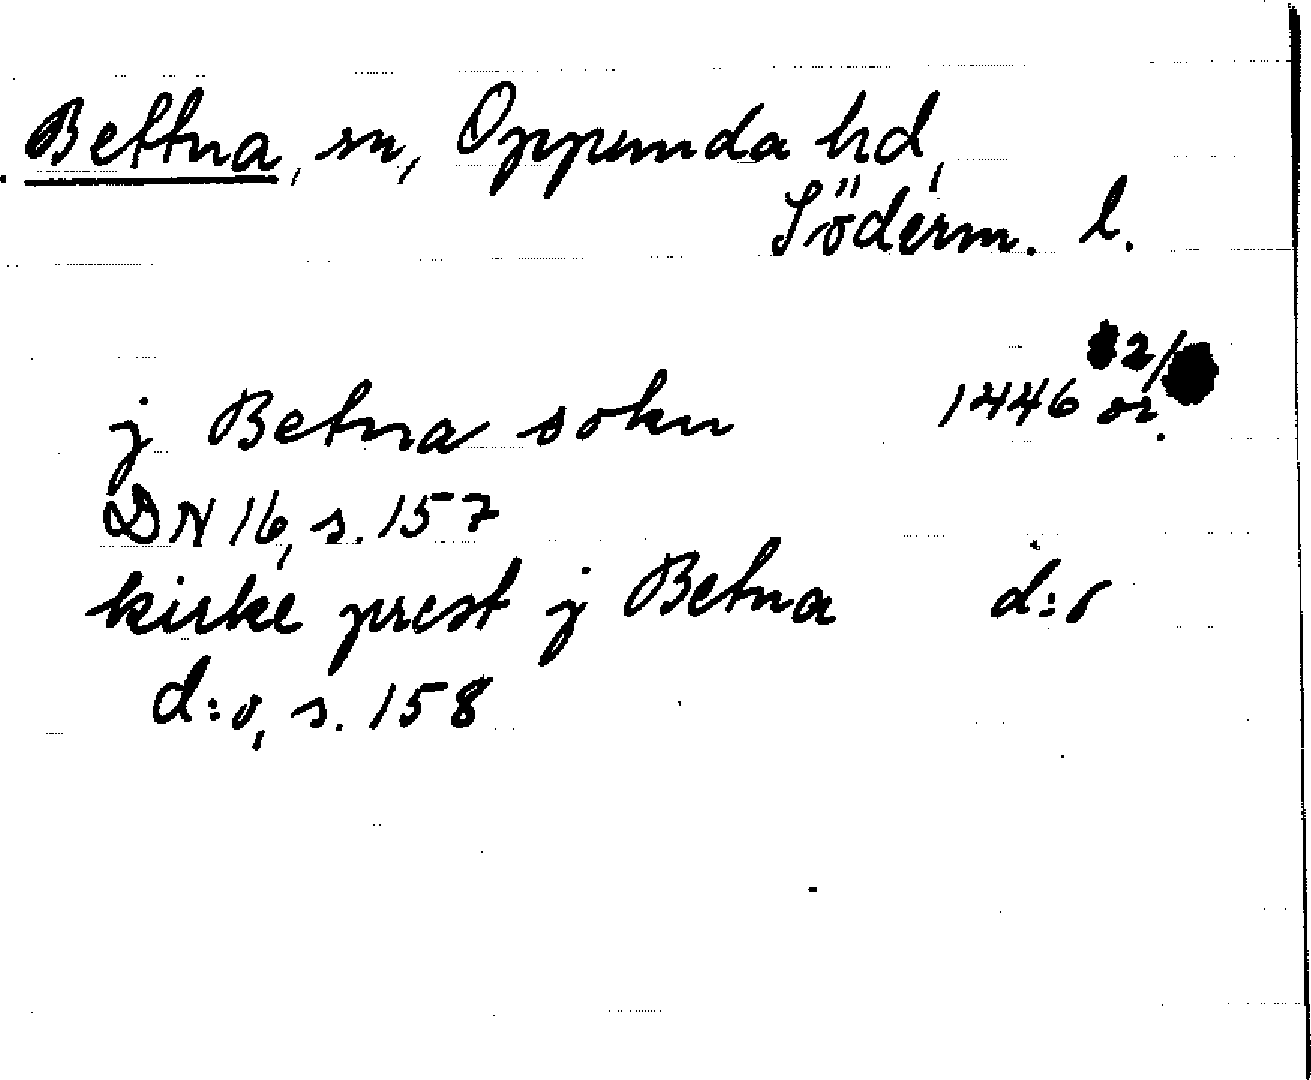 Bettna, sn, Oppunda hd,
Söderm. l.
j Betna sokn 1446 2/ or.
DN 16, s. 157
kirke prest j Betna d:o
d:o, s. 158